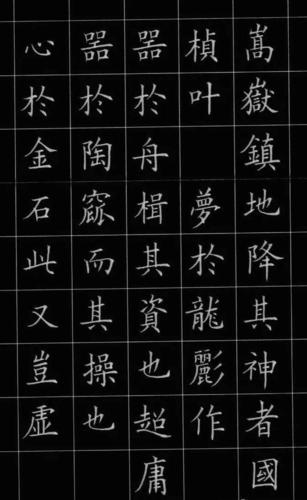 嵩嶽鎮地降其神者國
楨叶夢於龍彲作
器於舟楫其資也超庸
器於陶窳而其操也
心於金石此又豈虛